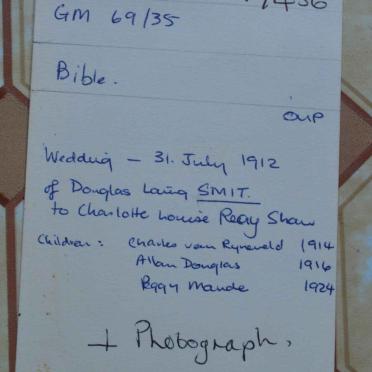 GM 69/35
Bible.
OUP
Wedding - 31. July 1912
of Douglas Laing SMIT.
to Charlotte Louise Reay Shaw
Children: Charles van Ryneveld 1914
Allan Douglas 1916
Peggy Maude 1924
+ Photograph.